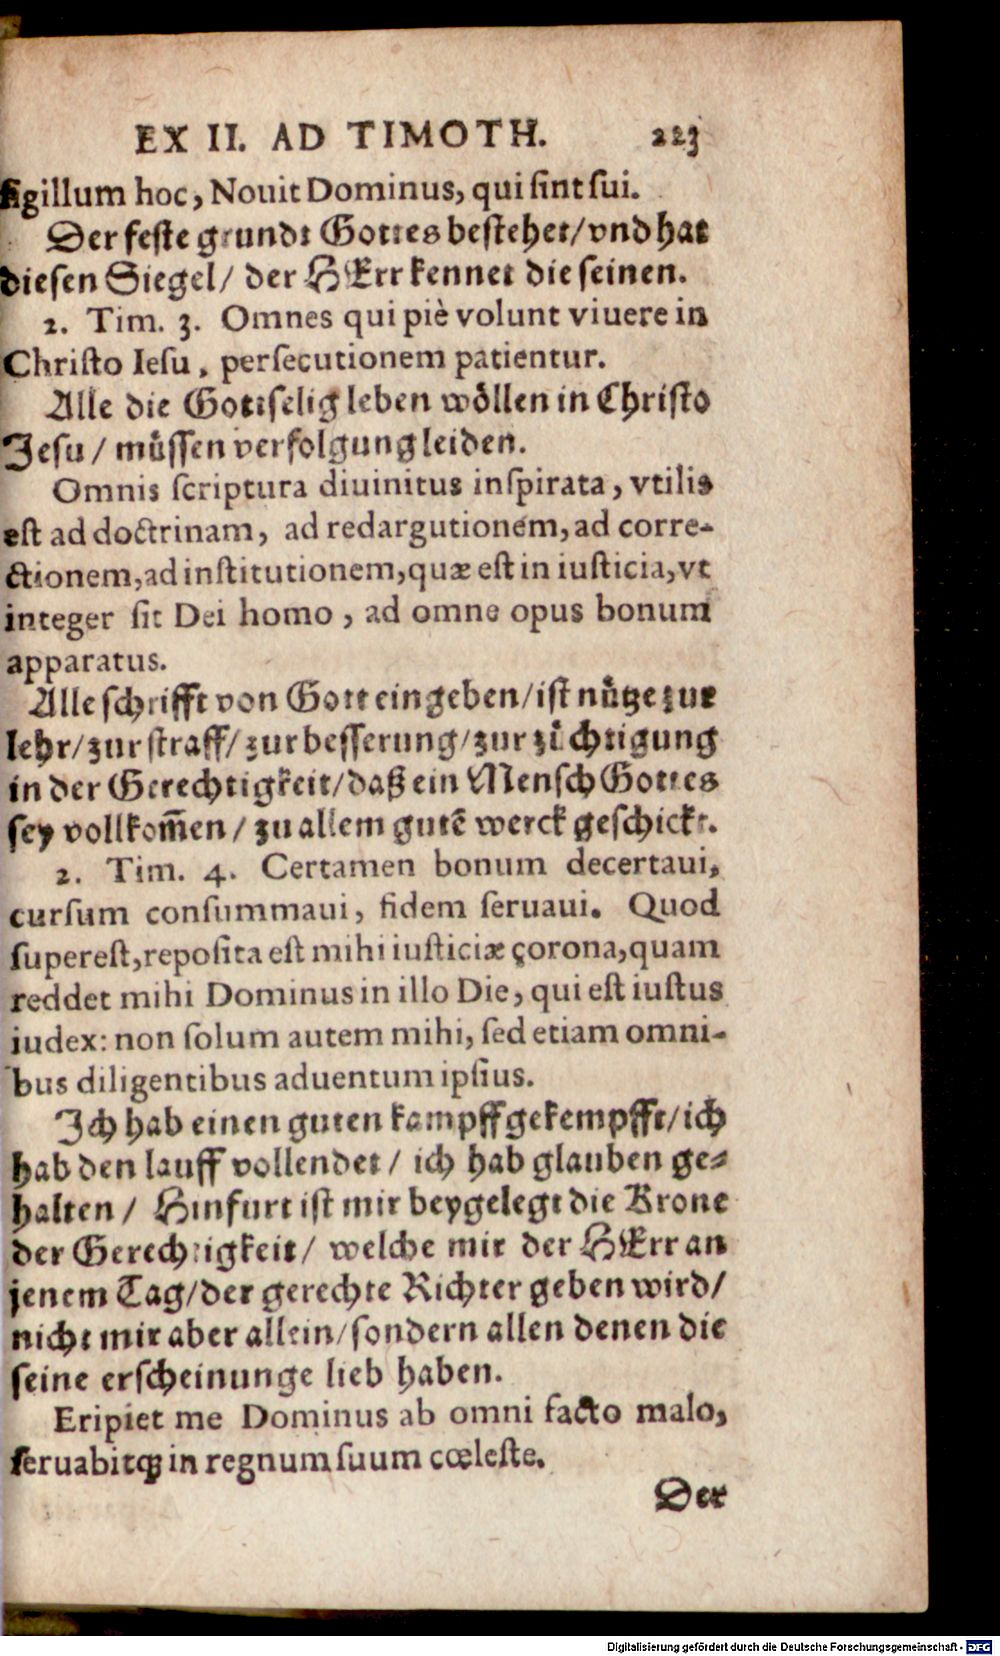 EX II. AD TIMOTH. 223
sigillum hoc, Nouit Dominus, qui sint sui.
Der feste grundt Gottes bestehet/ vnd hat
diesen Siegel/ der HErr kennet die seinen.
2. Tim. 3. Omnes qui piè volunt viuere in
Christo Iesu, persecutionem patientur.
Alle die Gottselig leben wöllen in Christo
Jesu/ müssen verfolgung leiden.
Omnis scriptura diuinitus inspirata, vtilis
est ad doctrinam, ad redargutionem, ad corre-
ctionem, ad institutionem, quæ est in iusticia, vt
integer sit Dei homo, ad omne opus bonum
apparatus.
Alle schrifft von Gott eingeben/ ist nütze zur
lehr/ zur straff/ zur besserung/ zur züchtigung
in der Gerechtigkeit/ daß ein Mensch Gottes
sey vollkom̃en/ zu allem gutẽ werck geschickt.
2. Tim. 4. Certamen bonum decertaui,
cursum consummaui, fidem seruaui. Quod
superest, reposita est mihi iusticiæ corona, quam
reddet mihi Dominus in illo Die, qui est iustus
iudex: non solum autem mihi, sed etiam omni-
bus diligentibus aduentum ipsius.
Ich hab einen guten kampff gekempfft/ ich
hab den lauff vollendet/ ich hab glauben ge-
halten/ Hinfurt ist mir beygelegt die Krone
der Gerechtigkeit/ welche mir der HErr an
jenem Tag/ der gerechte Richter geben wird/
nicht mir aber allein/ sondern allen denen die
seine erscheinunge lieb haben.
Eripiet me Dominus ab omni facto malo,
seruabitq́; in regnum suum cœleste.
Der
Digitalisierung gefördert durch die Deutsche Forschungsgemeinschaft - DFG